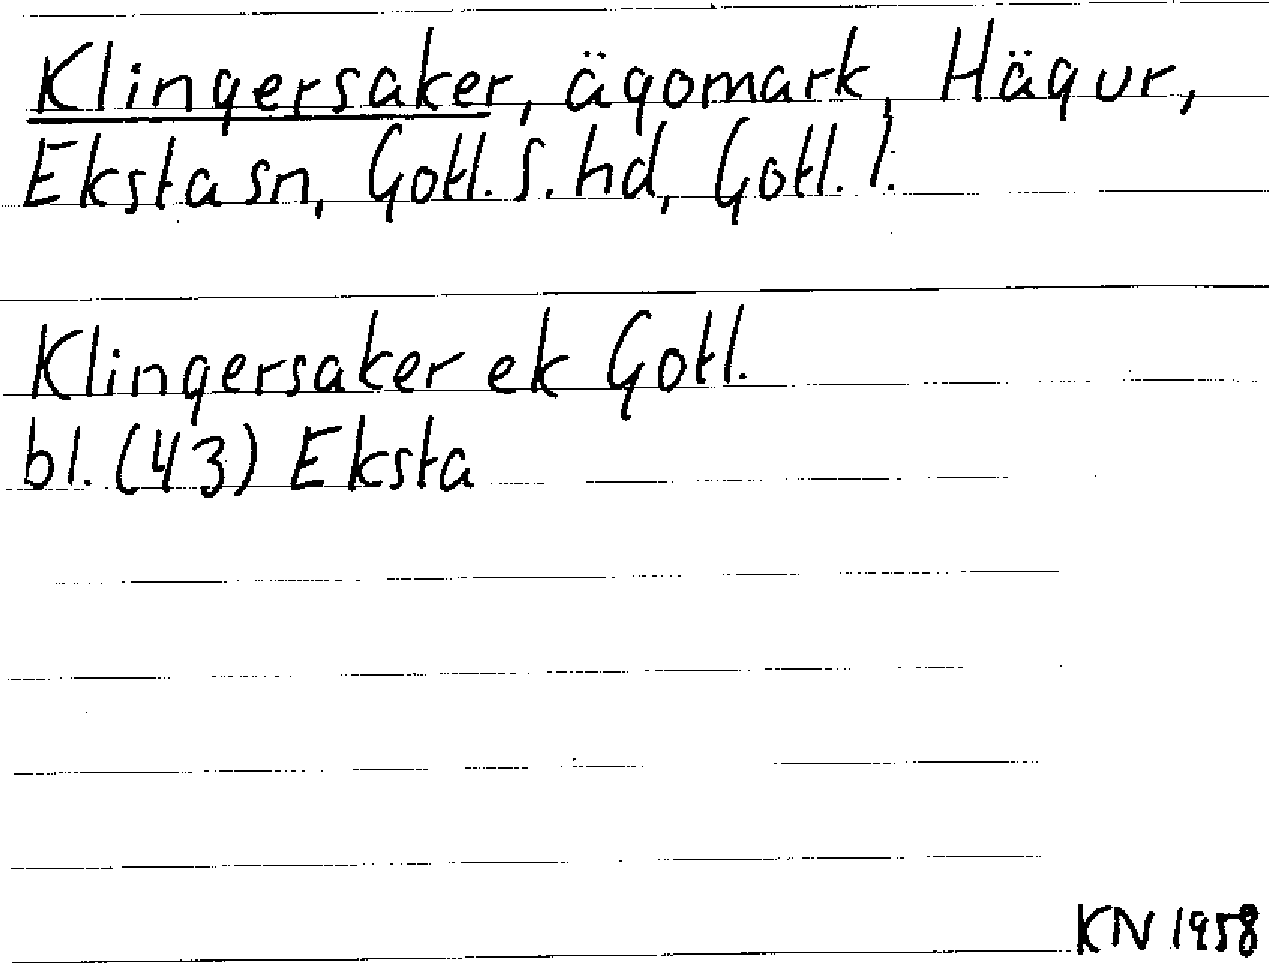 Klingersaker, ägomark, Hägur,
Eksta sn, Gotl. S. hd, Gotl. l.
Klingersaker ek Gotl.
bl. (43) Eksta
KN 1958